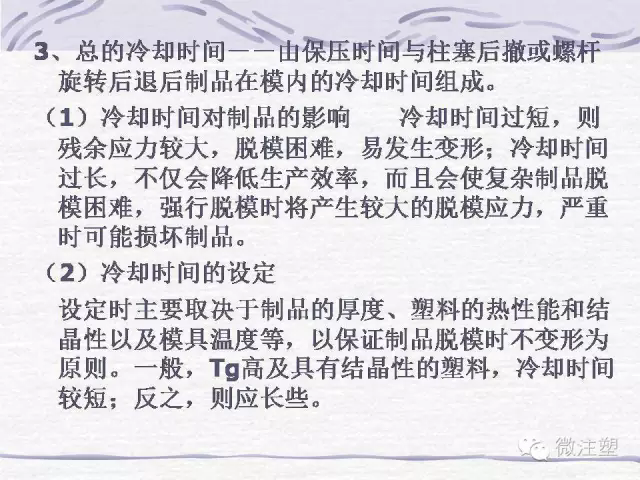 3、总的冷却时间——由保压时间与柱塞后撤或螺杆
旋转后退后制品在模内的冷却时间组成。
（1）冷却时间对制品的影响　　冷却时间过短，则
残余应力较大，脱模困难，易发生变形；冷却时间
过长，不仅会降低生产效率，而且会使复杂制品脱
模困难，强行脱模时将产生较大的脱模应力，严重
时可能损坏制品。
（2）冷却时间的设定
设定时主要取决于制品的厚度、塑料的热性能和结
晶性以及模具温度等，以保证制品脱模时不变形为
原则。一般，Tg高及具有结晶性的塑料，冷却时间
较短；反之，则应长些。
微注塑